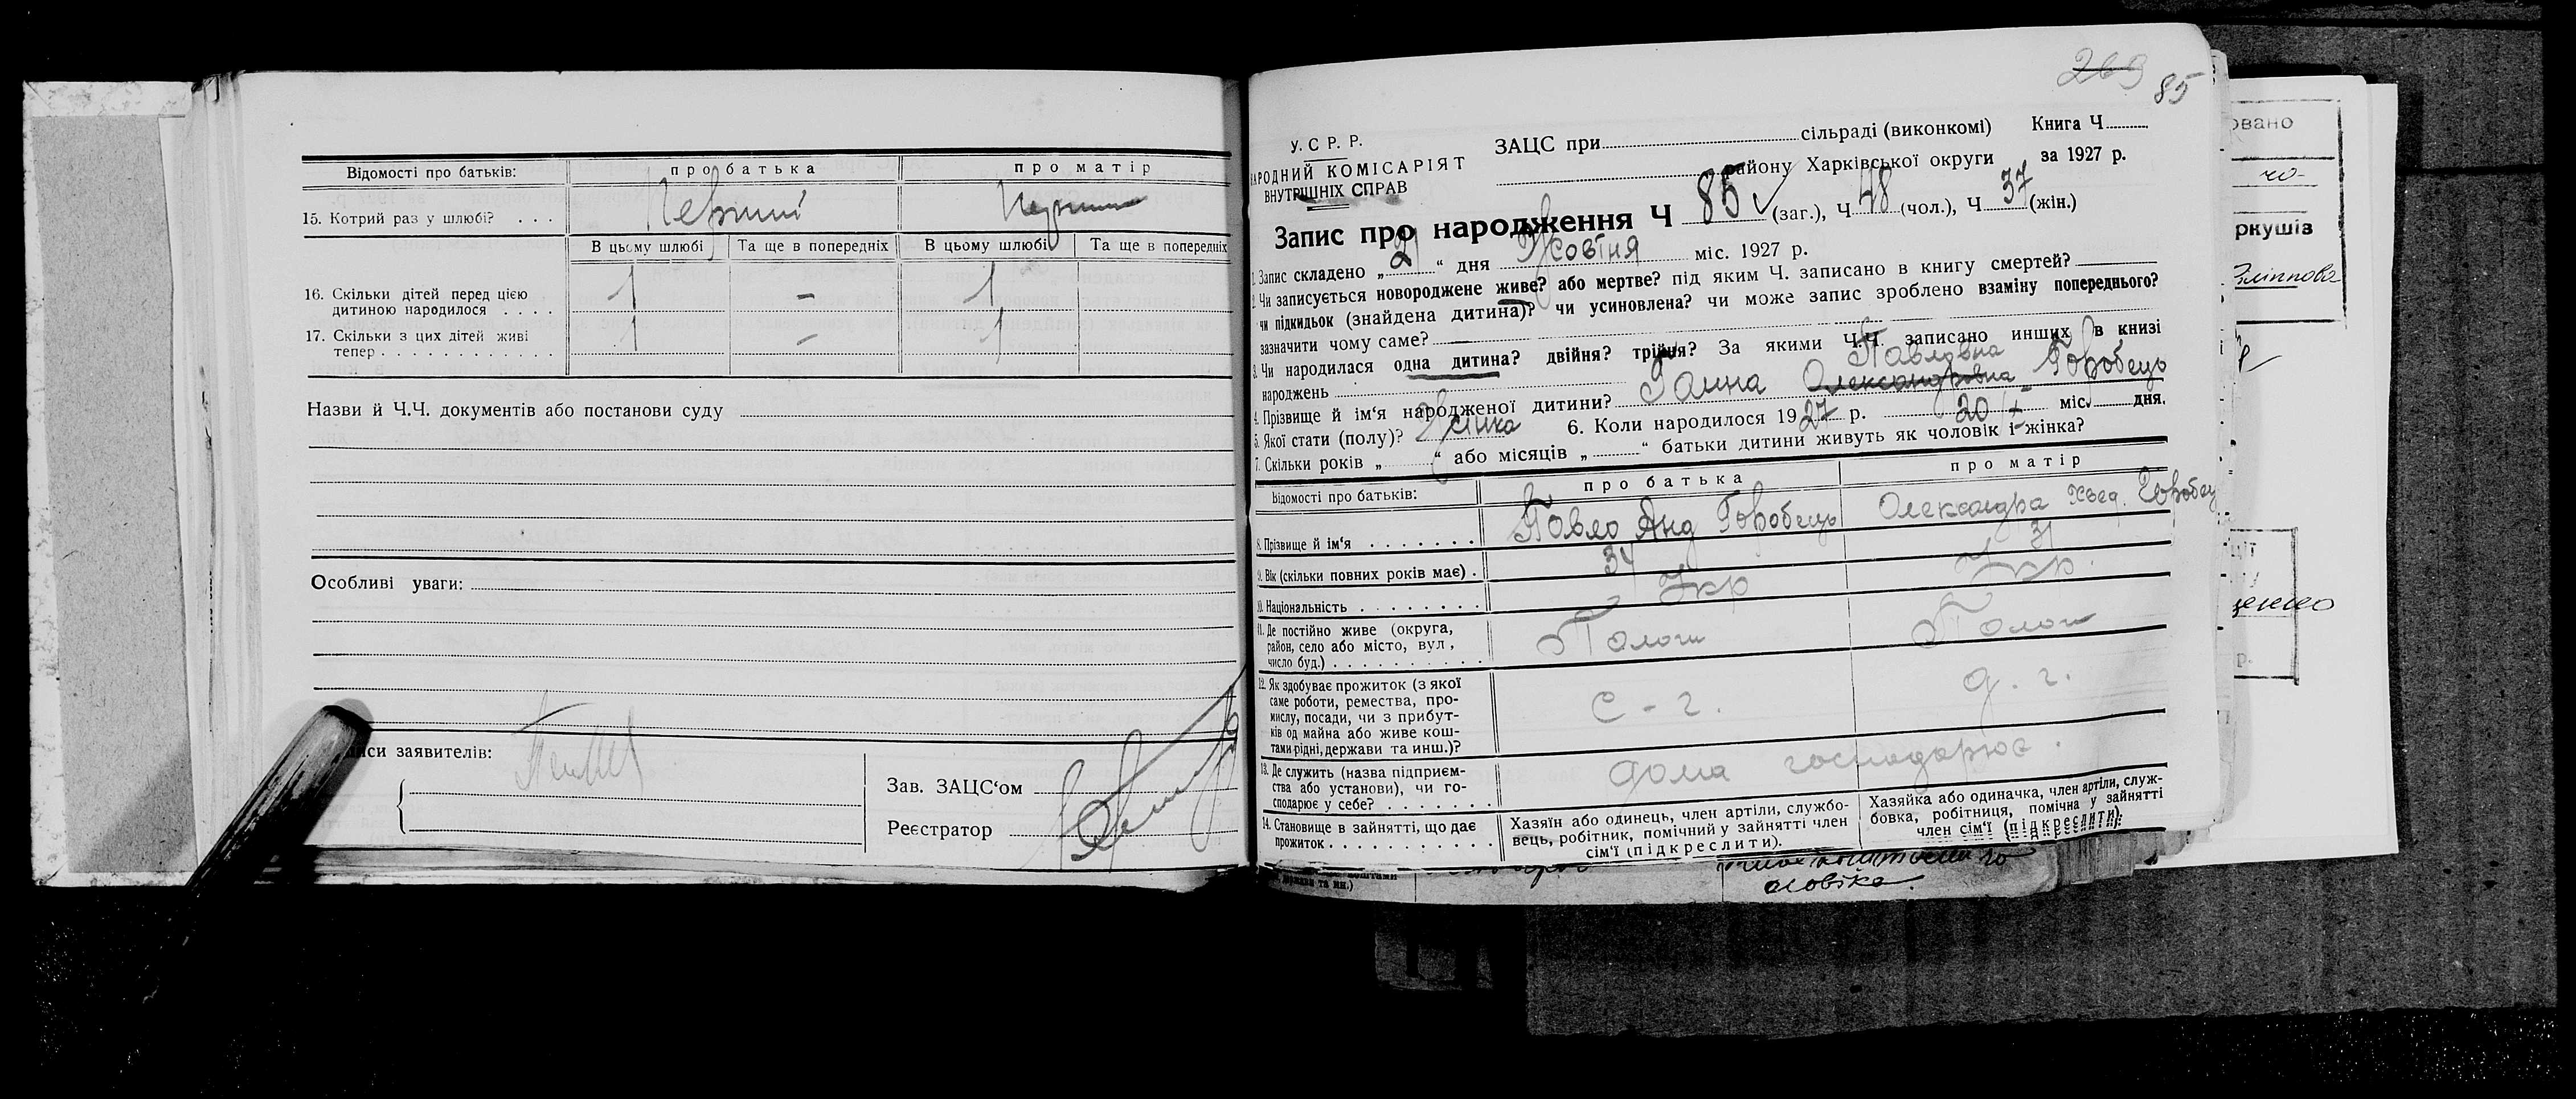 Відомості про батьків: про батька про матір
15. Котрий раз у шлюбі? . . . Перший Перший
В цьому шлюбі Та ще в попередніх В цьому шлюбі Та ще в попередніх
16. Скільки дітей перед цією
дитиною народилося . . . . 1 – 1
17. Скільки з цих дітей живі
тепер . . . . . . . . . . . . 1 – 1
Назви й Ч.Ч. документів або постанови суду
Особливі уваги:
заявителів:
Зав. ЗАЦС‘ом
Реєстратор
269
85
У. С Р. Р.
НАРОДНИЙ КОМІСАРІЯТ
ВНУТРІШНІХ СПРАВ
ЗАЦС при сільраді (виконкомі) Книга Ч
району Харківської округи за 1927 р.
Запис про народження Ч 85 (заг.), Ч 48 (чол.), Ч 37 (жін.)
1. Запис складено „ 21 “ дня Жовтня міс. 1927 р.
2. Чи записується новороджене живе? або мертве? під яким Ч. записано в книгу смертей?
чи підкидьок (знайдена дитина)? чи усиновлена? чи може запис зроблено взаміну попереднього?
зазначити чому саме?
3. Чи народилася одна дитина? двійня? трійня? За якими Ч.Ч. записано инших в книзі
народжень
Павловна
4. Прізвище й ім‘я народженої дитини? Ганна Олександровна Горобець
5. Якої стати (полу)? Жінка 6. Коли народилося 1927 р. 20/X міс. дня.
7. Скільки років „ “ або місяців „ “ батьки дитини живуть як чоловік і жінка?
Відомості про батьків: про батька про матір
8. Прізвище й ім‘я . . . . . . . Павло Анд Горобець Олександра Хвед. Горобец
9. Вік (скільки повних років має) . 34 31
10. Національність . . . . . . . . Укр Укр.
11. Де постійно живе (округа,
район, село або місто, вул,
число буд.) . . . . . . . . . .
12. Як здобуває прожиток (з якої
саме роботи, ремества, про-
мислу, посади, чи з прибут-
ків од майна або живе кош-
тами рідні, держави та инш.)? с - г. д. г.
13. Де служить (назва підприєм-
ства або установи), чи го-
сподарює у себе? . . . . . . . дома господарює.
14. Становище в зайнятті, що дає
прожиток . . . . . . . . . . .
Хазяїн або одинець, член артіли, службо-
вець, робітник, помічний у зайнятті член
сім‘ї (підкреслити).
Хазяйка або одиначка, член артіли, служ-
бовка, робітниця, помічна у зайнятті
член сім‘ї (підкреслити).